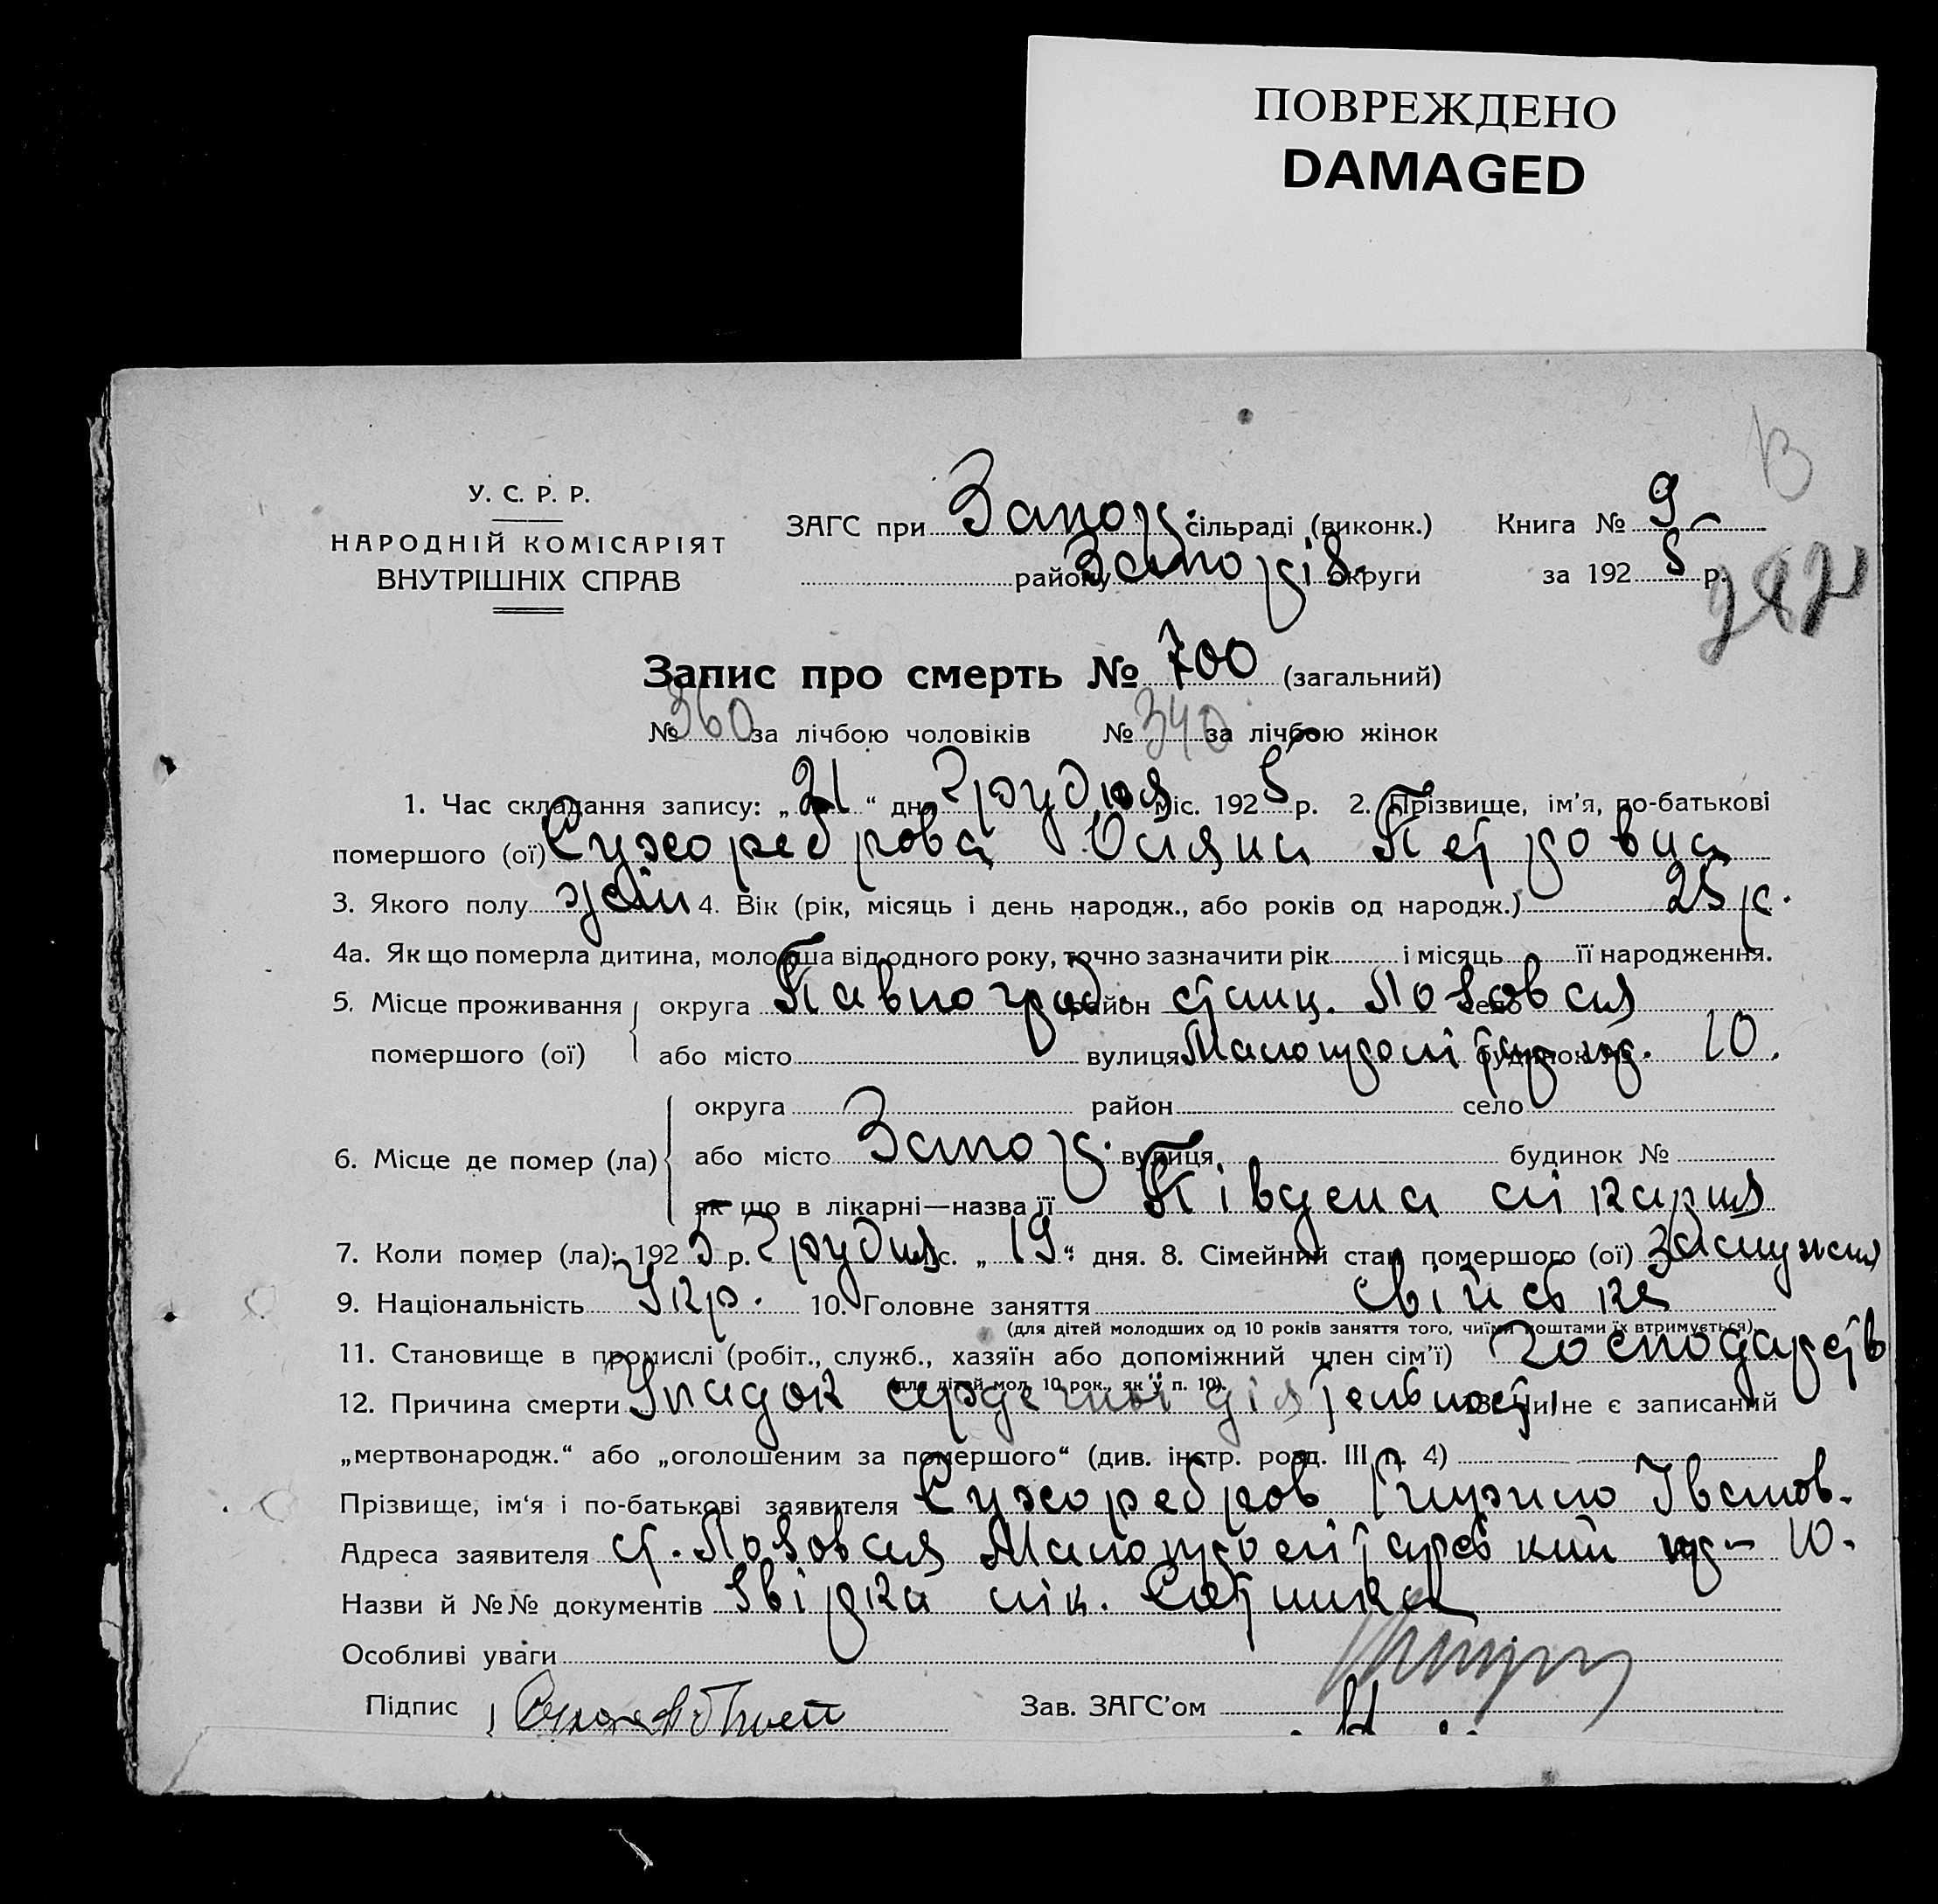 ПОВРЕЖДЕНО
DAMAGED
У. С. Р. Р.
НАРОДНІЙ КОМІСАРІЯТ
ВНУТРІШНІХ СПРАВ
ЗАГС при Запор. сільраді (виконк.) Книга № 9
району Запоріз. округи за 1925 р.
Запис про смерть № 700 (загальний)
№ 360 за лічбою чоловіків № 340 за лічбою жінок
1. Час складання запису: „21“ дня Грудня міс. 1925 р. 2. Прізвище, ім’я, по-батькові
помершого (ої) Сухореброва Уляна Петровна
3. Якого полу жін 4. Вік (рік, місяць і день народж., або років од народж.) 25 р.
4а. Як що померла дитина, молодша від одного року, точно зазначити рік і місяць її народження.
5. Місце проживання округа Павлоград. район станц. Лозовая село
помершого (ої) або місто вулиця Малопролітар. будинок № 10.
округа район село
6. Місце де помер (ла) або місто Запор. вулиця будинок №
як що в лікарні—назва її Південа лікарня
7. Коли помер (ла): 1925 р. Грудня міс. „19“ дня. 8. Сімейний стан помершого (ої) замужня
9. Національність Укр. 10. Головне заняття свійське
(для дітей молодших од 10 років заняття того, чиїми коштами їх втримується)
11. Становище в промислі (робіт., служб., хазяїн або допоміжний член сім’ї) господарств
(для дітей мол. 10 рок., як у п. 10).
12. Причина смерти Упадок сердечної діятельності 13. Чи не є записаний
„мертвонародж.“ або „оголошеним за помершого“ (див. інстр. розд. III п. 4)
Прізвище, ім‘я і по-батькові заявителя Сухоребров Іванов.
Адреса заявителя ст. Лозовая Малопролітарський 10.
Назви й №№ документів Звідка лік.
Особливі уваги
Підпис Зав. ЗАГС’ом